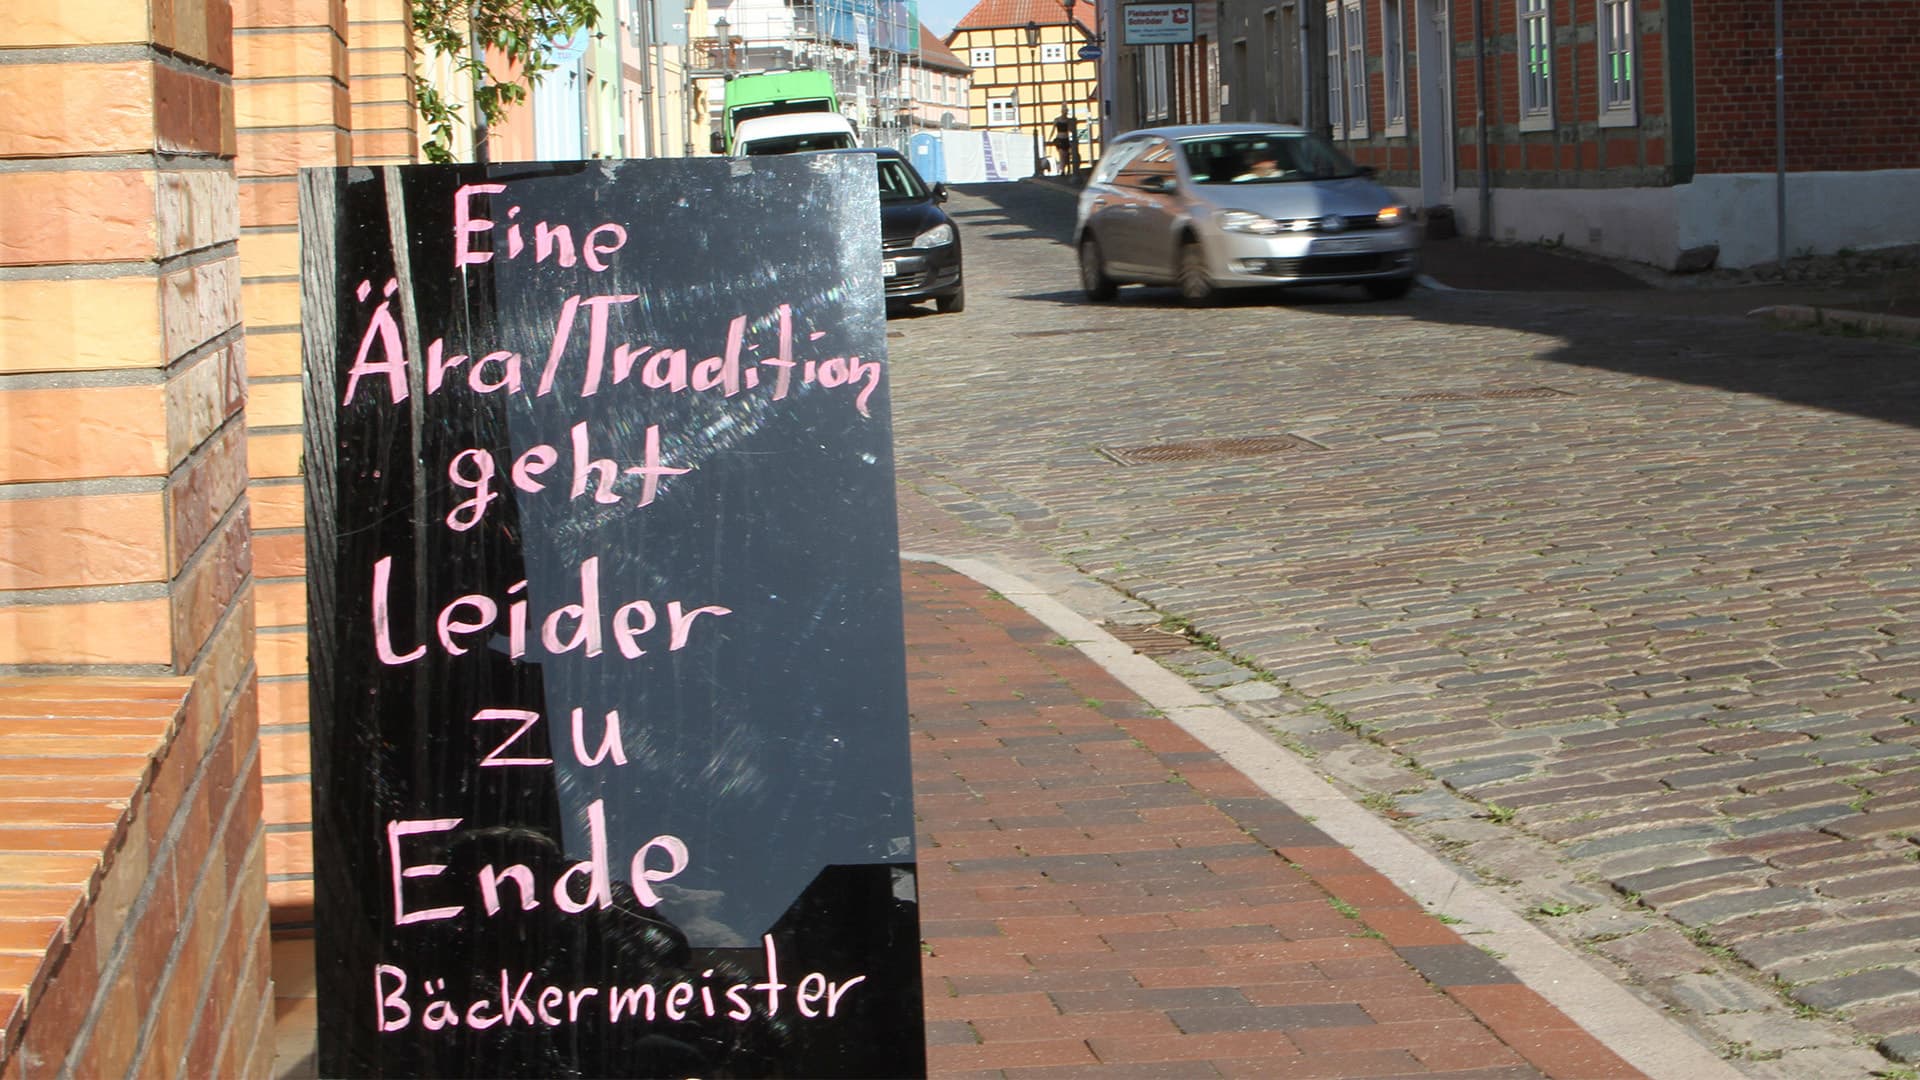 Eine
Ära/Tradition
geht
Leider
zu
Ende
Bäckermeister
Fleischerei
Schröder